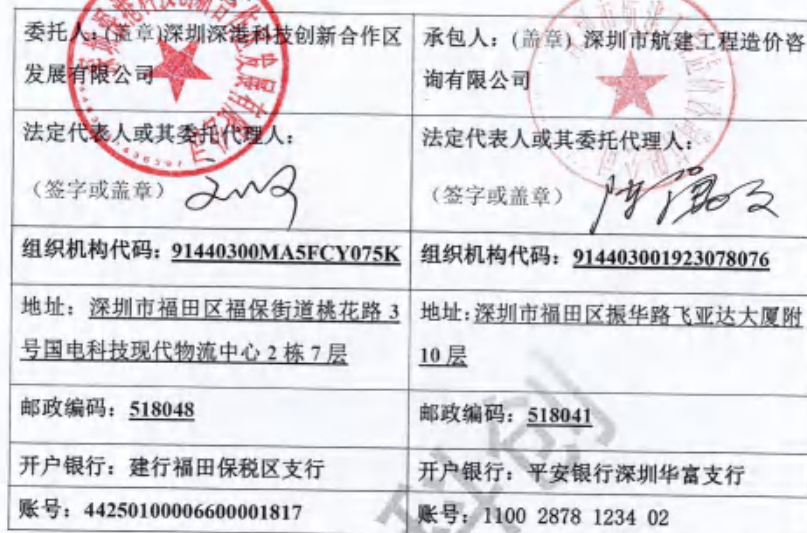 委托人：(盖章)深圳深港科技创新合作区
发展有限公司
承包人：(盖章) 深圳市航建工程造价咨
询有限公司
法定代表人或其委托代理人：
（签字或盖章）
法定代表人或其委托代理人：
（签字或盖章）
组织机构代码：91440300MA5FCY075K
组织机构代码：914403001923078076
地址：深圳市福田区福保街道桃花路 3
号国电科技现代物流中心 2 栋 7 层
地址：深圳市福田区振华路飞亚达大厦附
10 层
邮政编码：518048
邮政编码：518041
开户银行：建行福田保税区支行
开户银行：平安银行深圳华富支行
账号：44250100006600001817
账号：1100 2878 1234 02
科创